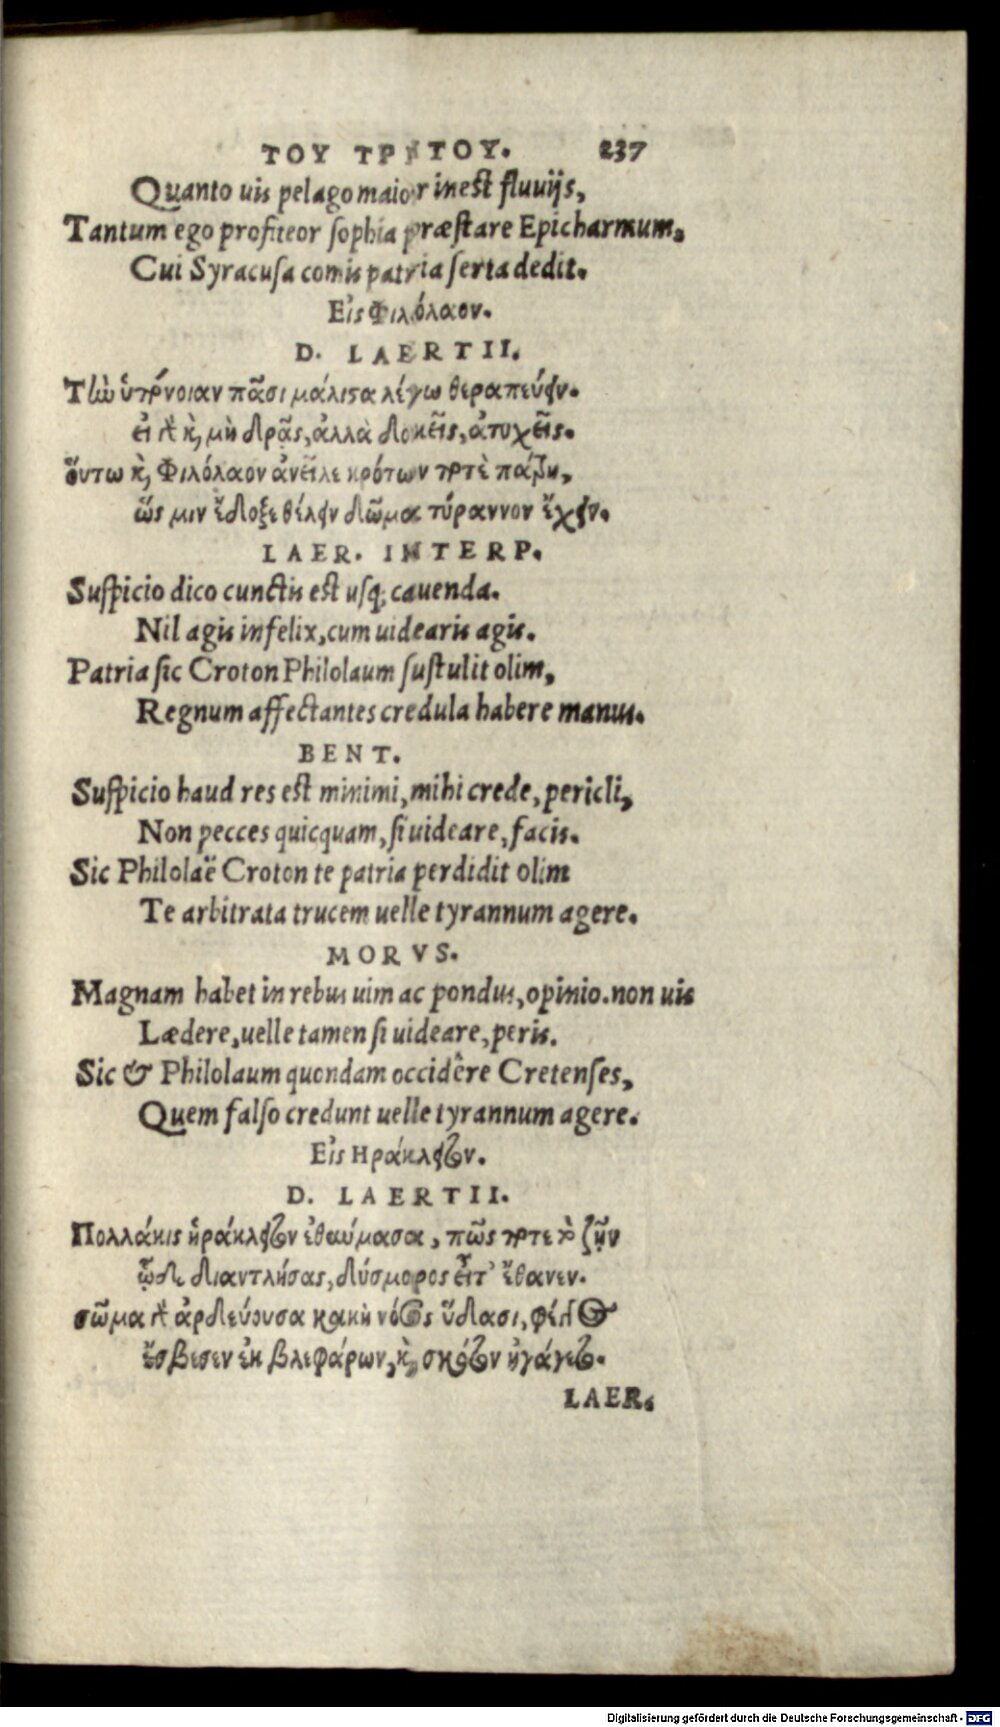 ΤΟΥ ΤΡΙΤΟΥ. 237
Quanto uis pelago maior inest fluuijs,
Tantum ego profiteor sophia præstare Epicharmum,
Cui Syracusa comis patria serta dedit.
Εἰς Φιλόλαον.
D. LAERTII.
Τὼ ὑπόνοιαν πᾶσι μάλιστα λέγω θεραπεύειν.
εἰ γὰρ καὶ μὴ δρᾷς, ἀλλὰ δοκεῖς, ἀτυχεῖς.
ὅυτω καὶ Φιλόλαον ἀνεῖλε κρότων ποτὲ πάτρη,
ὥς μιν ἔδοξε θέλειν δῶμα τύραννον ἔχειν.
LAER. INTERP.
Suspicio dico cunctis est usq; cauenda.
Nil agis infelix, cum uidearis agis.
Patria sic Croton Philolaum sustulit olim,
Regnum affectantes credula habere manus.
BENT.
Suspicio haud res est minimi, mihi crede, pericli,
Non pecces quicquam, si uideare, facis.
Sic Philolaë Croton te patria perdidit olim
Te arbitrata trucem uelle tyrannum agere.
MORVS.
Magnam habet in rebus uim ac pondus, opinio. non uis
Lædere, uelle tamen si uideare, peris.
Sic & Philolaum quondam occidêre Cretenses,
Quem falso credunt uelle tyrannum agere.
Εἰς Ηράκλειτον.
D. LAERTII.
Πολλάκις ἡράκλειτον ἐθαύμασα, πῶς ποτε τὸ ζῆν
ᾧδε διαντλήσας, δύσμορος εἶτ' ἔθανεν.
σῶμα γὰρ ἀρδεύουσα κακὴ νόσος ὕδασι, φέγγος
ἔσβεσεν ἐκ βλεφάρων, καὶ σκότον ἠγάγετο.
LAER.
Digitalisierung gefördert durch die Deutsche Forschungsgemeinschaft - DFG